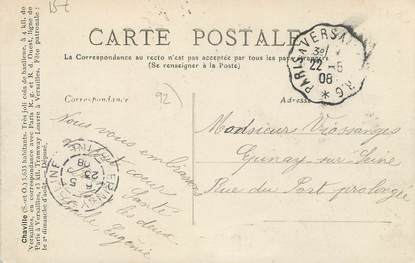 15f
CARTE POSTALE
La Correspondance au recto n'est pas acceptée par tous les pays étrangers
(Se renseigner à la Poste)
Correspondance
Adresse
92
PARIS A VERSAILLES R.G.
3º/
22 -5
08
Nous vous embrassons
de tout cœur
Santé
les deux
Eugénie
EPINAY S SEINE
5
23
08
Monsieur Viossanges
Epinay-sur-Seine
Rue du Port prolongée
Chaville (S.-et-O.) 3,533 habitants. Très joli coin de banlieue, à 4 kil. de
Versailles, en correspondance avec Paris R. g. et R. d. Ouest, ligne de
Paris à Versailles, 13 kil. Tramway Louvre à Versailles. Fête patronale :
le 2e dimanche d'août. — Déposé.